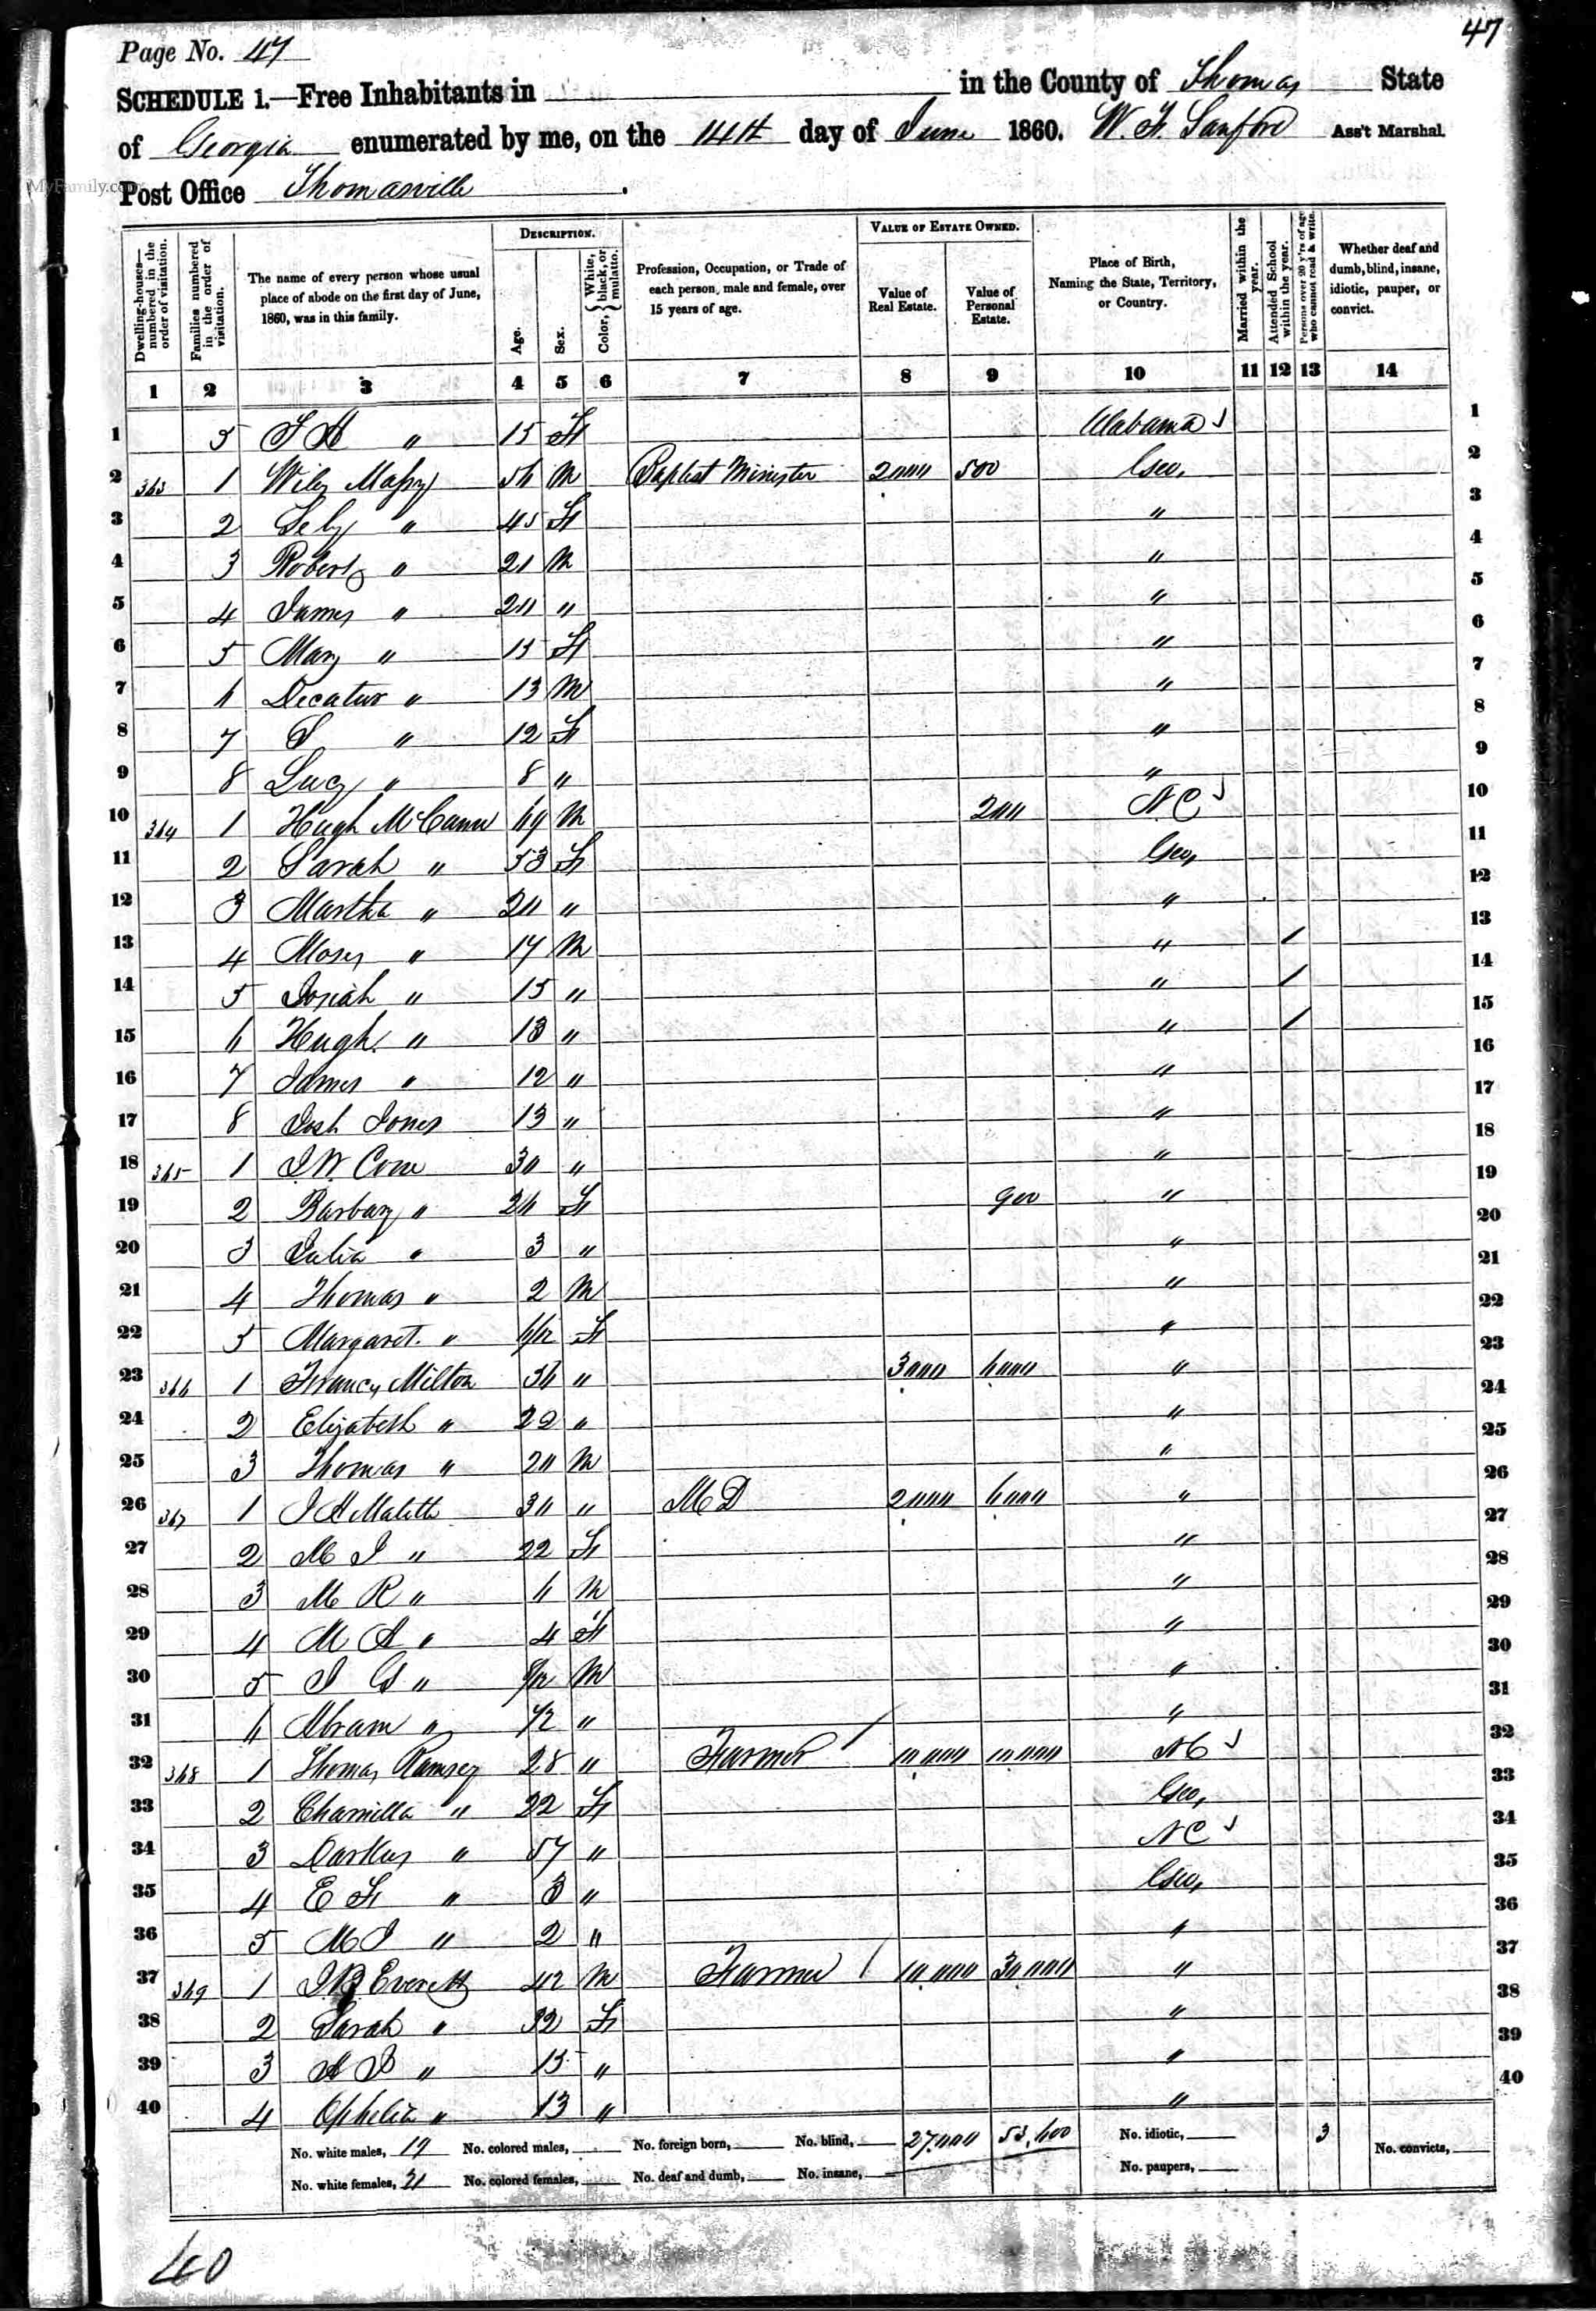 47
Page No. 47
SCHEDULE 1.—Free Inhabitants in in the County of Thomas State
of Georgia enumerated by me, on the 14th day of June 1860. W. H. Sanford Ass't Marshal.
MyFamily.com
Post Office Thomasville .
Dwelling-houses—numbered in the order of visitation.
Families numbered in the order of visitation.
The name of every person whose usual place of abode on the first day of June, 1860, was in this family.
DESCRIPTION.
Age.
Sex.
Color, { White, black, or mulatto.
Profession, Occupation, or Trade of each person, male and female, over 15 years of age.
VALUE OF ESTATE OWNED.
Value of Real Estate.
Value of Personal Estate.
Place of Birth, Naming the State, Territory, or Country.
Married within the year.
Attended School within the year.
Persons over 20 y'rs of age who cannot read & write.
Whether deaf and dumb, blind, insane, idiotic, pauper, or convict.
1 2 3 4 5 6 7 8 9 10 11 12 13 14
1 5 " 15 F Alabama 1
2 363 1 Wiley Massy 56 M Baptist Minister 2000 500 Geo, 2
3 2 " 45 F " 3
4 3 Robert " 21 M " 4
5 4 James " 20 " " 5
6 5 Mary " 15 F " 6
7 6 Decatur " 13 M " 7
8 7 S " 12 F " 8
9 8 Lucy " 8 " " 9
10 364 1 Hugh McCann 69 M 200 N.C 10
11 2 Sarah " 53 F Geo, 11
12 3 Martha " 20 " " 12
13 4 Moses " 17 M " / 13
14 5 Josiah " 15 " " / 14
15 6 Hugh " 13 " " / 15
16 7 James " 12 " " 16
17 8 Josh Jones 13 " " 17
18 365 1 J.W. Cone 30 " " 18
19 2 Barbary " 26 F 900 " 19
20 3 Julia " 3 " " 20
21 4 Thomas " 2 M " 21
22 5 Margaret " 6/12 F " 22
23 366 1 Francy Milton 36 " 3000 6000 " 23
24 2 Elizabeth " 22 " " 24
25 3 Thomas " 20 M " 25
26 367 1 J H Malett 30 " M D 2000 6000 " 26
27 2 M J " 22 F " 27
28 3 M R " 6 M " 28
29 4 M A " 4 F " 29
30 5 J G " M " 30
31 6 Abram " " " 31
32 368 1 Thomas Ramsey 28 " Farmer / 10,000 10,000 N C 32
33 2 Chamilla " 22 F Geo, 33
34 3 Darkus " 57 " N C 34
35 4 E F " 3 " Geo, 35
36 5 M J " 2 " " 36
37 369 1 J.B. Everett 42 M Farmer / 10,000 30,000 " 37
38 2 Sarah " 32 F " 38
39 3 A J " 15 " " 39
40 4 Ophelia " 13 " " 40
No. white males, 19 No. colored males, No. foreign born, No. blind, 27,000 53,600 No. idiotic, 3 No. convicts,
No. white females, 21 No. colored females, No. deaf and dumb, No. insane, No. paupers,
40